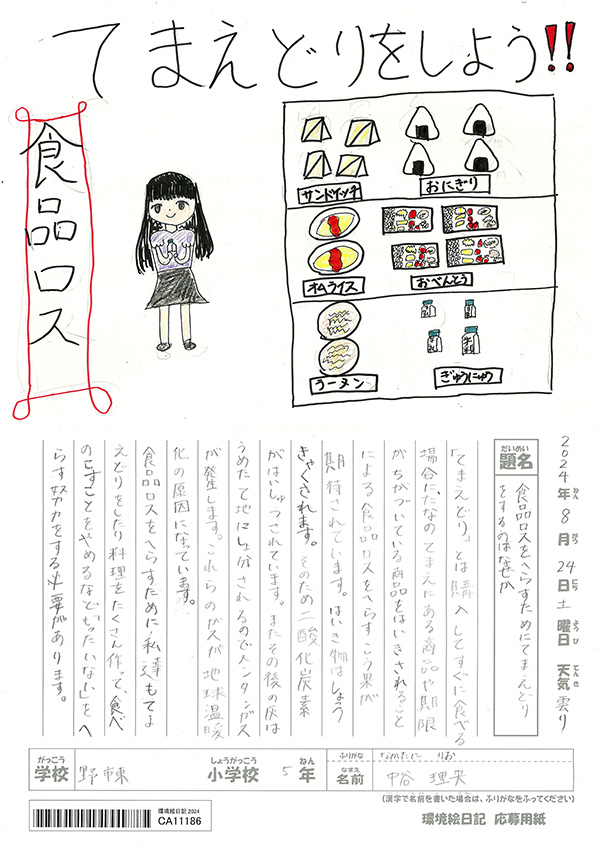 てまえどりをしよう!!
食品ロス
サンドイッチ
おにぎり
オムライス
おべんとう
ラーメン
ぎゅうにゅう
2024年ねん8月がつ24日にち土曜日ようび 天気てんき曇り
だいめい
題名
食品ロスをへらすためにてまえどり
をするのはなぜか
「てまえどり」とは購入してすぐに食べる
場合にたなのてまえにある商品や期限
がちかづいている商品をはいきされること
による食品ロスをへらすこう果が
期待されています。はいき物はしょう
きゃくされます。そのため二酸化炭素
がはいしゅつされています。またその後の灰は
うめたて地にしょ分されるのでメンタンガス
が発生します。これらのガスが地球温暖
化の原因になっています。
食品ロスをへらすために私達もてま
えどりをしたり料理をたくさん作って、食べ
のこすことをやめるなど「もったいない」をへ
らす努力をする必要があります。
がっこう
学校
野市東
しょうがっこう
小学校
5
ねん
年
ふりがな
なかたに りお
なまえ
名前
中谷 理央
(漢字で名前を書いた場合は、ふりがなをふってください)
環境絵日記 2024
CA11186
環境絵日記 応募用紙